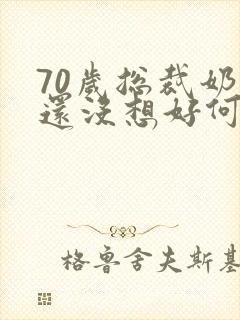 70歲总裁奶
還没想好何
格鲁舍夫斯基